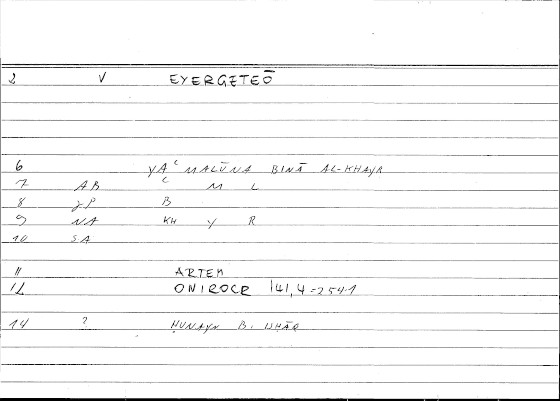 2 V EYERGETEŌ
6 YAʿMALŪNA BINĀ AL-KHAYR
7 AB ʿ M L
8 JP B
9 NA KH Y R
10 SA
11 ARTEM
12 ONIROCR 141,4=254,1
14 ? ḤUNAYN B. ISḤĀQ